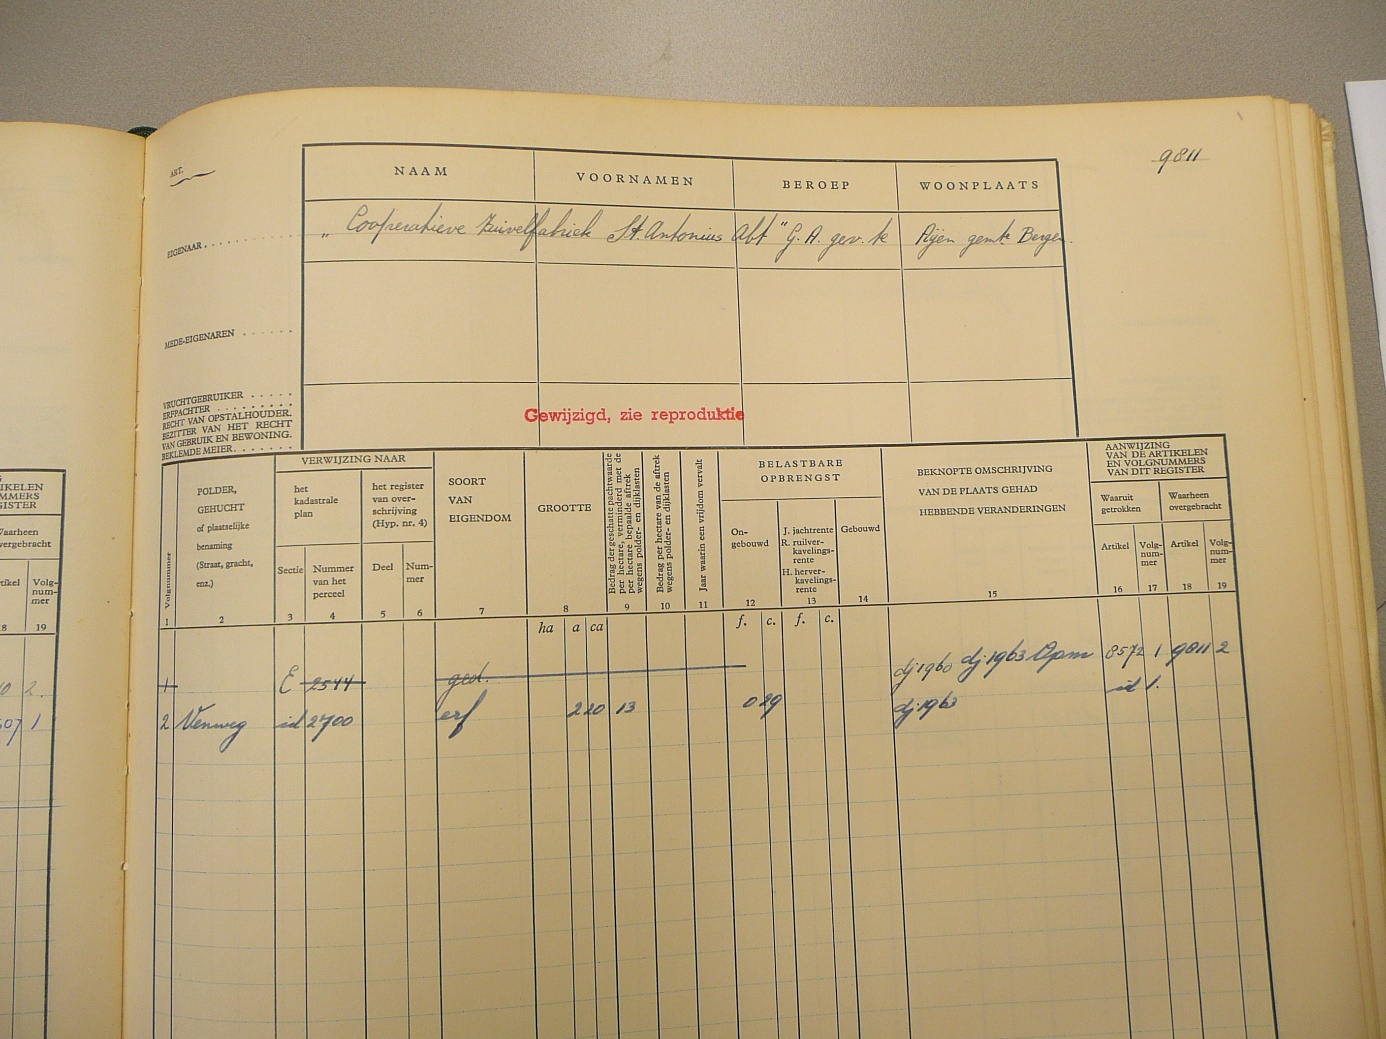 9811
ART.
NAAM VOORNAMEN BEROEP WOONPLAATS
EIGENAAR
„ Cooperatieve Zuivelfabriek St. Antonius Abt " G. A. gev. te Aijen gemte Bergen.
MEDE-EIGENAREN
VRUCHTGEBRUIKER
ERFPACHTER
RECHT VAN OPSTALHOUDER.
BEZITTER VAN HET RECHT
VAN GEBRUIK EN BEWONING.
BEKLEMDE MEIER
Gewijzigd, zie reproduktie
Volgnummer
POLDER,
GEHUCHT
of plaatselijke
benaming
(Straat, gracht,
enz.)
VERWIJZING NAAR
het
kadastrale
plan
het register
van over-
schrijving
(Hyp. nr. 4)
Sectie
Nummer
van het
perceel
Deel
Num-
mer
SOORT
VAN
EIGENDOM
GROOTTE
Bedrag der geschatte pachtwaarde
per hectare, verminderd met de
per hectare bepaalde aftrek
wegens polder- en dijklasten
Bedrag per hectare van de aftrek
wegens polder- en dijklasten
Jaar waarin een vrijdom vervalt
BELASTBARE
OPBRENGST
On-
gebouwd
J. jachtrente
R. ruilver-
kavelings-
rente
H. herver-
kavelings-
rente
Gebouwd
BEKNOPTE OMSCHRIJVING
VAN DE PLAATS GEHAD
HEBBENDE VERANDERINGEN
AANWIJZING
VAN DE ARTIKELEN
EN VOLGNUMMERS
VAN DIT REGISTER
Waaruit
getrokken
Waarheen
overgebracht
Artikel
Volg-
num-
mer
Artikel
Volg-
num-
mer
1 2 3 4 5 6 7 8 9 10 11 12 13 14 15 16 17 18 19
ha a ca f. c. f. c.
1 E 2544 ged. dj 1960 dj 1963 Opm 8572 1 9811 2
2 Venweg id 2700 erf 2 20 13 0 29 dj 1963 id 1.
IKELEN
UMMERS
GISTER
Waarheen
vergebracht
tikel
Volg-
num-
mer
8 19
10 2.
507 1